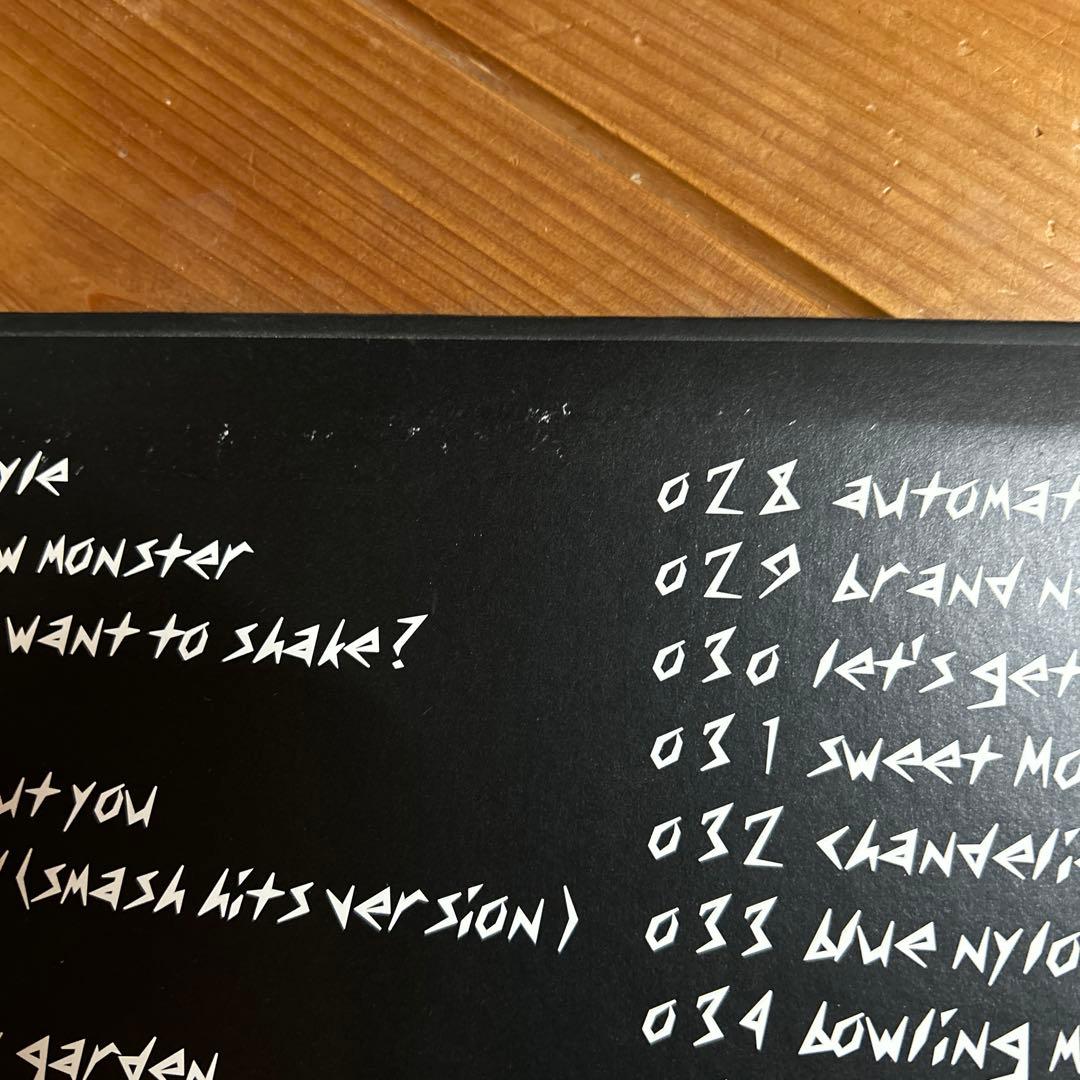 yle
w monster
want to shake?
ut you
(smash hits version)
garden
028 automat
029 brand n
030 let's get
031 sweet mo
032 chandeli
033 blue nylo
034 bowling m